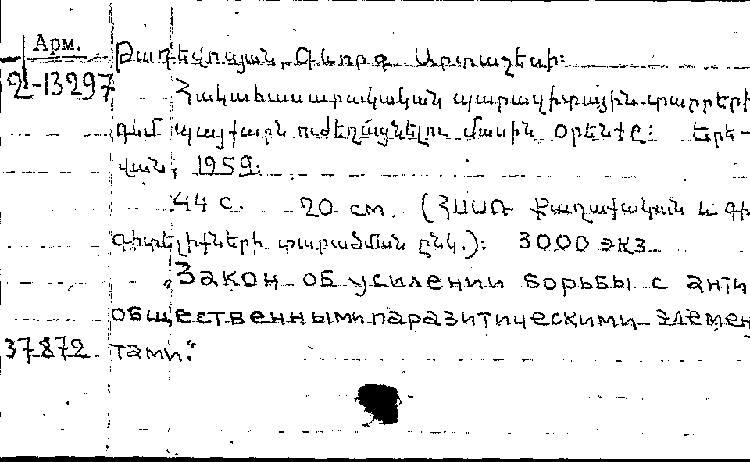 Арм.
Զ-13297
Թադևոսյան, Գևորգ Արտաշեսի:
Հակահասարակական պարազիտային տարրերի
դեմ պայքարն ուժեղացնելու մասին օրենքը: Երև-
վան, 1959.
44 с. 20 см. (ՀՍՍՌ Քաղաքական և գի
գիտելիքների տարածման ընկ.): 3000 экз.
„Закон об усилении борьбы с анти
общественными паразитическими элемен
37872 тами."